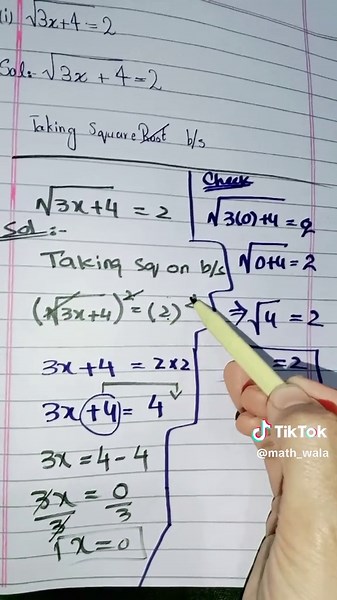 (i) √3x+4 = 2
Sol:- √3x + 4 = 2
Taking Square Root b/s
√3x+4 = 2
Sol:-
Taking sq on b/s
(√3x+4)² = (2)²
3x+4 = 2×2
3x+4 = 4
3x = 4-4
3x/3 = 0/3
x=0
Check
√3(0)+4 = 2
√0+4 = 2
⇒ √4 = 2
= 2
TikTok
@math_wala